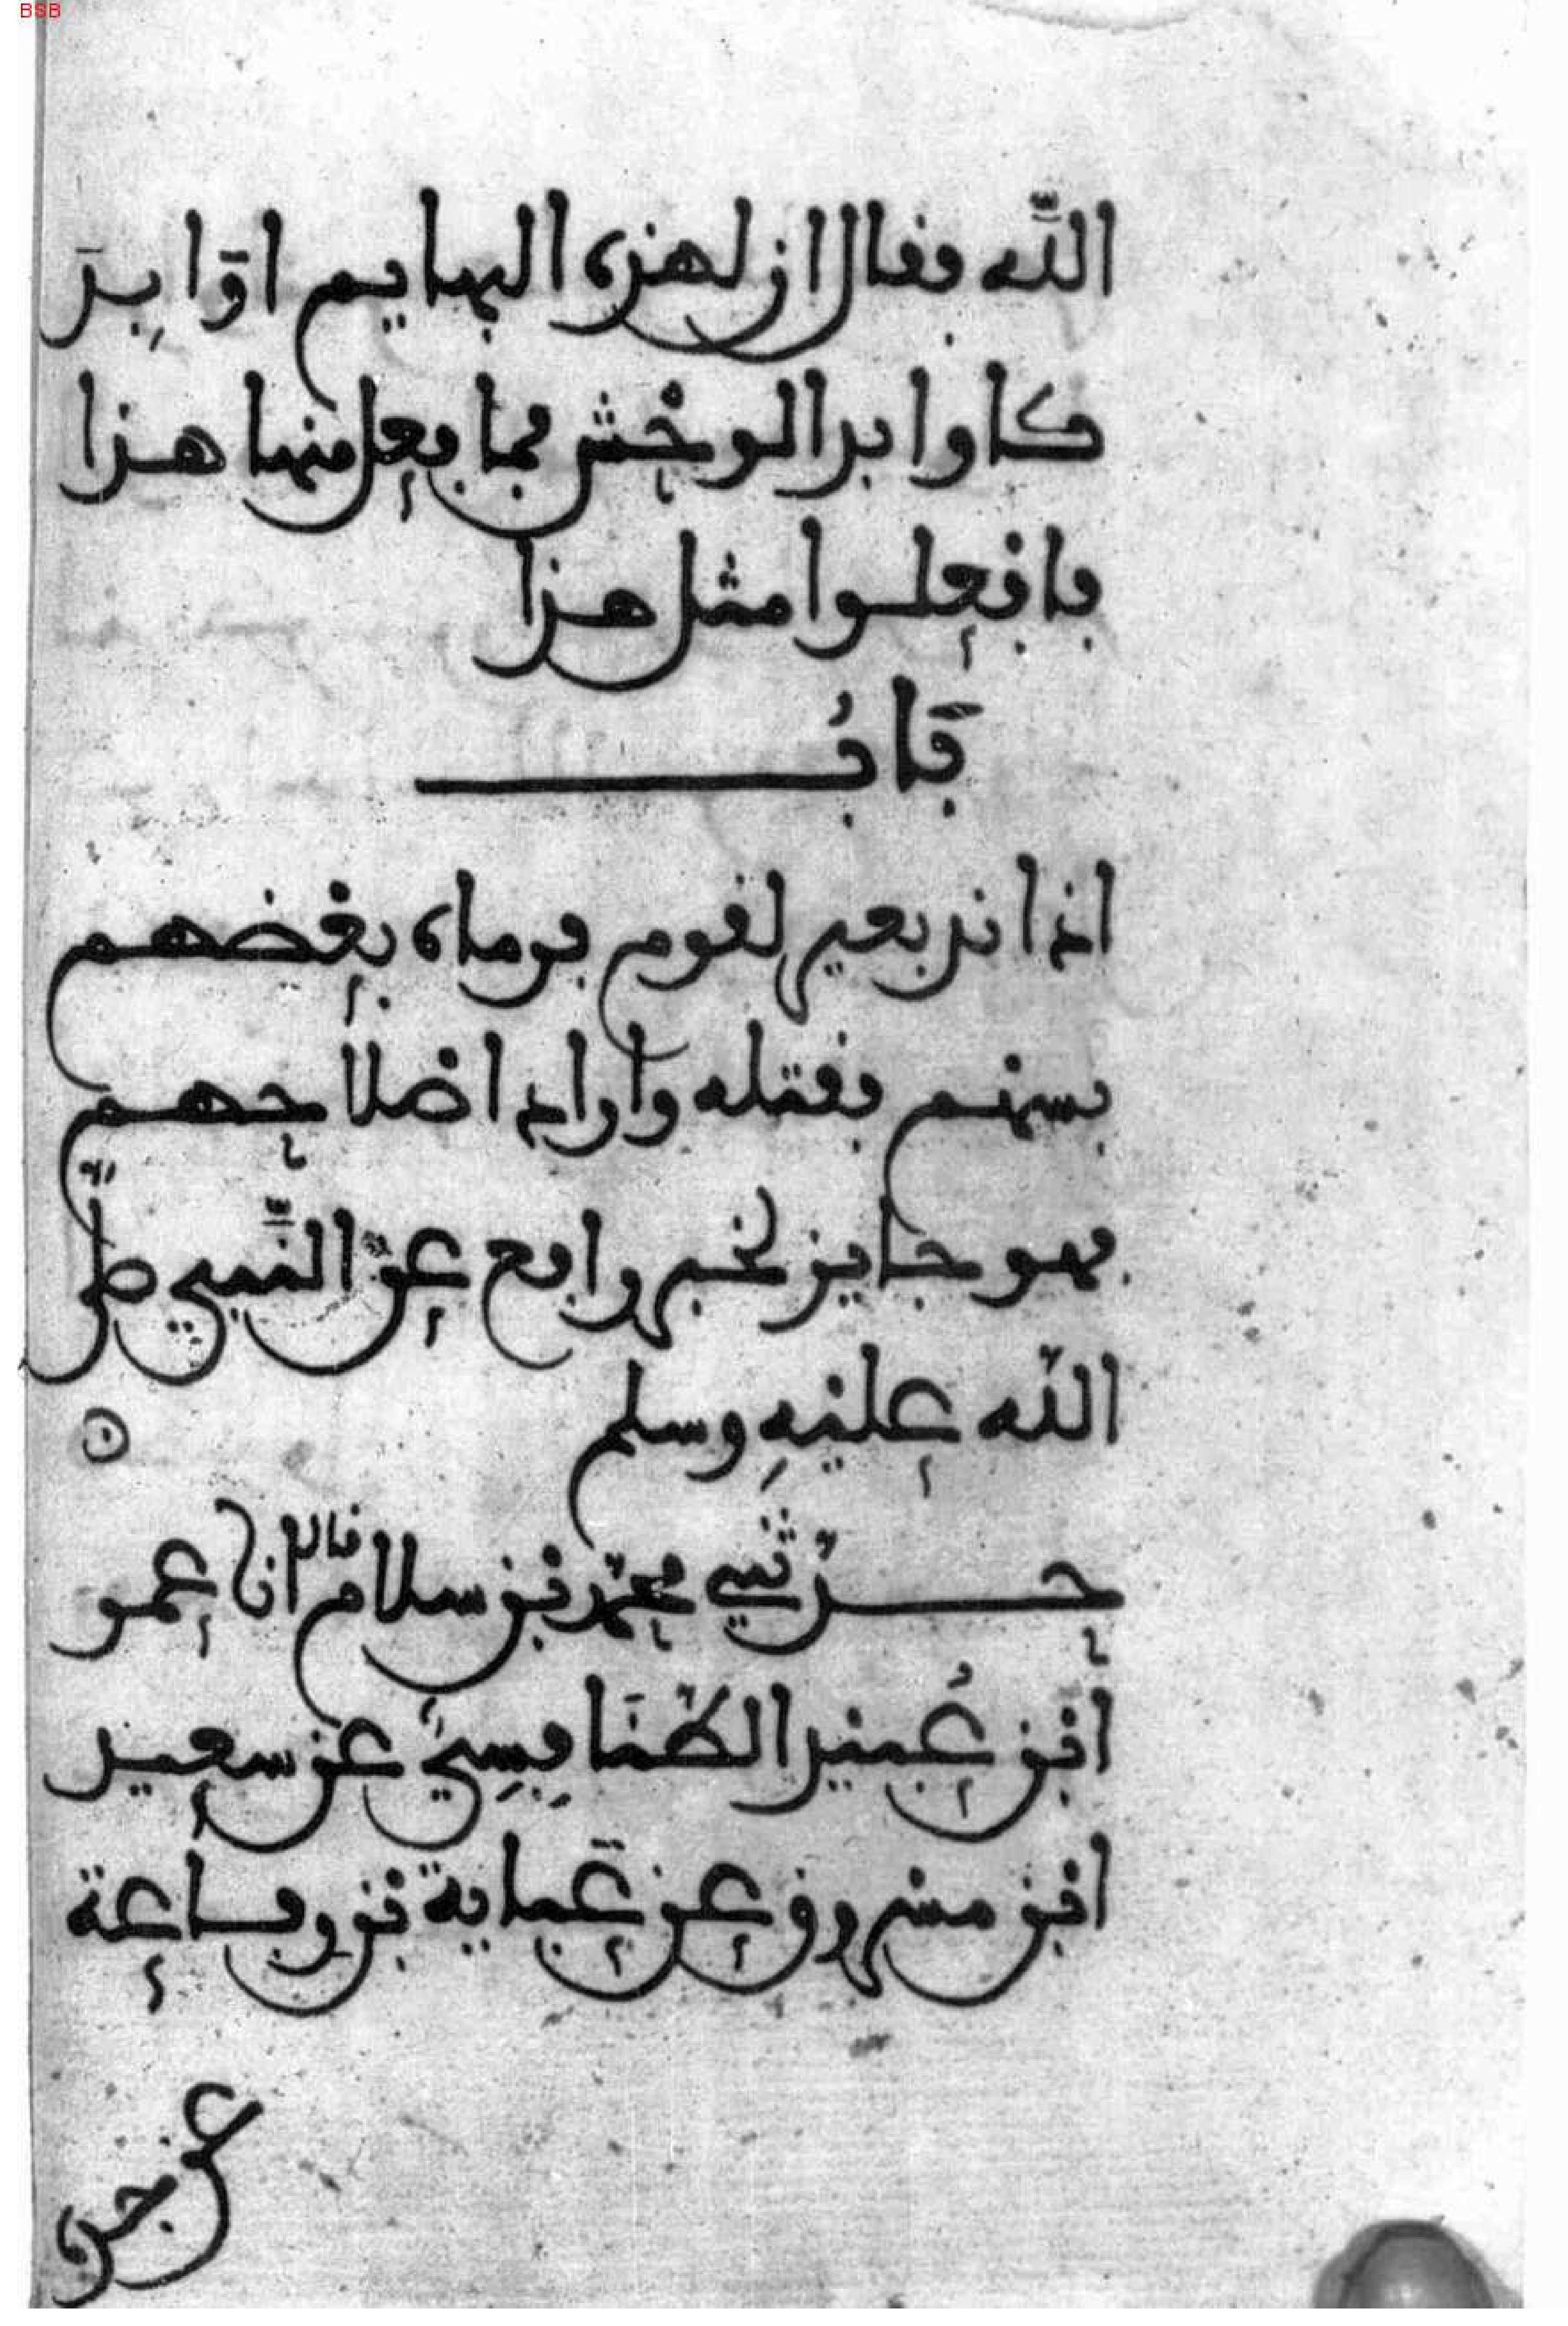 BSB
الله فقال ان لهذه البهايم اوَابِدَ
كاوابد الوحْش فما فعل منها هذا
فافْعلوا مثل هذا
بَابُ
اذا ند بعير لقوم فرماه بعْضهم
بسهم فقتله واراد اصْلاحهم
فهو جايز لخبر رافع عن النَّبي صلى
الله عليْهِ وسلم
حدّثني محمّد بْن سلام قال انا عمر
ابْن عُبيْد الطّنَافِسِيُّ عنْ سعيد
ابْن مسْروق عنْ عَباية بْن رفاعة
عنْ جده